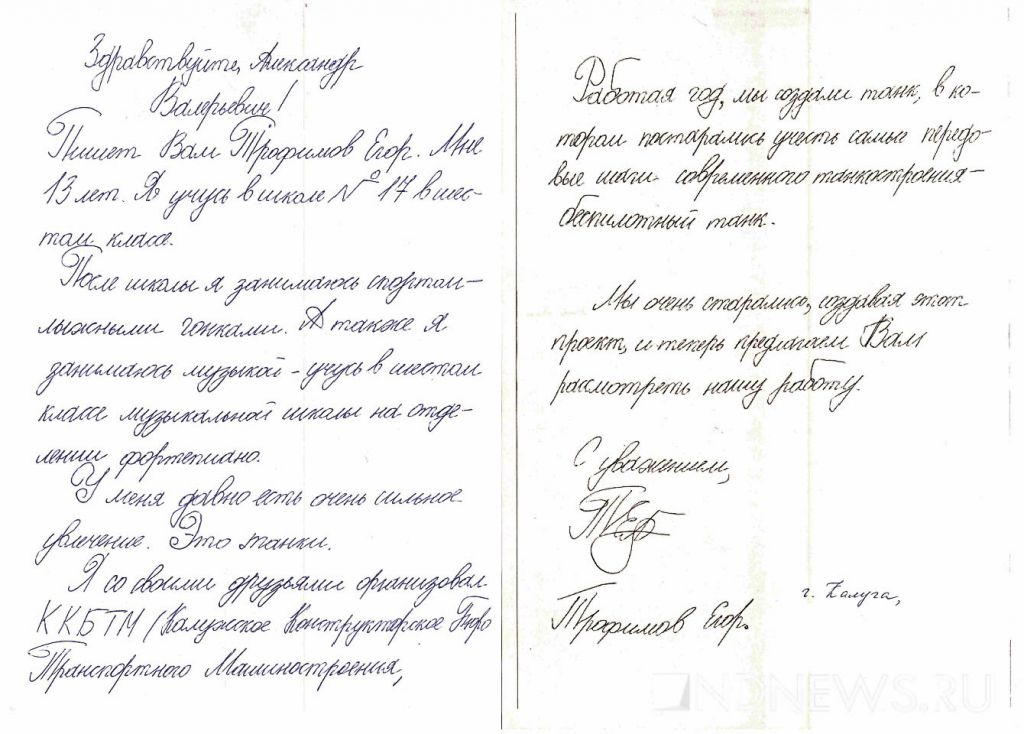 Здравствуйте, Александр
Валерьевич!
Пишет Вам Трофимов Егор. Мне
13 лет. Я учусь в школе № 17 в шес-
том классе.
После школы я занимаюсь спортом –
лыжными гонками. А также я
занимаюсь музыкой – учусь в шестом
классе музыкальной школы на отде-
лении фортепиано.
У меня давно есть очень сильное
увлечение. Это танки.
Я со своими друзьями организовал
ККБТМ (Калужское Конструкторское Бюро
Транспортного Машиностроения,
Работая год, мы создали танк, в ко-
тором постарались учесть самые передо-
вые шаги современного танкостроения –
беспилотный танк.
Мы очень старались, создавая этот
проект, и теперь предлагаем Вам
рассмотреть нашу работу.
С уважением,
г. Калуга,
Трофимов Егор.
NDNEWS.RU